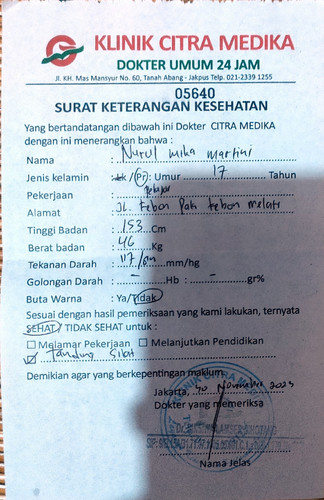 KLINIK CITRA MEDIKA
DOKTER UMUM 24 JAM
Jl. KH. Mas Mansyur No. 60, Tanah Abang - Jakpus Telp. 021-2339 1255
05640
SURAT KETERANGAN KESEHATAN
Yang bertandatangan dibawah ini Dokter CITRA MEDIKA
dengan ini menerangkan bahwa :
Nama : Nurul Mika Martini
Jenis kelamin : Lk / Pr): Umur 17 Tahun
Pekerjaan : Pelajar
Alamat : Jl. Kebon Pala Kebon melati
Tinggi Badan : 153 Cm
Berat badan : 46 Kg
Tekanan Darah : 117/ mm/hg
Golongan Darah : - Hb : - gr%
Buta Warna : Ya/Tidak
Sesuai dengan hasil pemeriksaan yang kami lakukan, ternyata
SEHAT / TIDAK SEHAT untuk :
Melamar Pekerjaan Melanjutkan Pendidikan
Demikian agar yang berkepentingan maklum
Jakarta, 30 November 2023
Dokter yang memeriksa
Nama Jelas